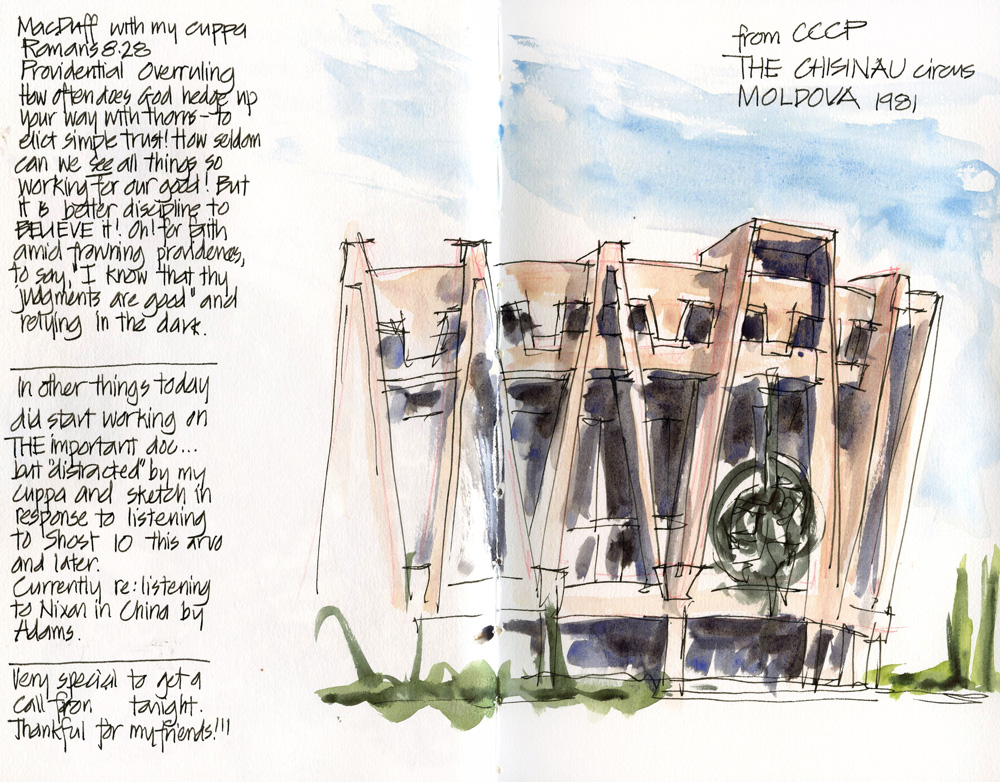 MacDuff with my cuppa
Romans 8:28
Providential Overruling
How often does God hedge up
your way with thorns – to
elicit simple trust! How seldom
can we see all things so
working for our good! But
it is better discipline to
BELIEVE it! Oh! for faith
amid frowning providences,
to say, "I know that thy
judgments are good" and
relying in the dark.
In other things today
did start working on
THE important doc...
but "distracted" by my
cuppa and sketch in
response to listening
to Shost 10 this arvo
and later.
Currently re: listening
to Nixon in China by
Adams.
Very special to get a
call from tonight.
Thankful for my friends!!!
from CCCP
THE CHISINAU circus
MOLDOVA 1981